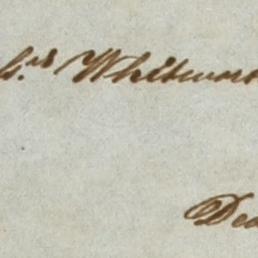 Whitwort
Dea